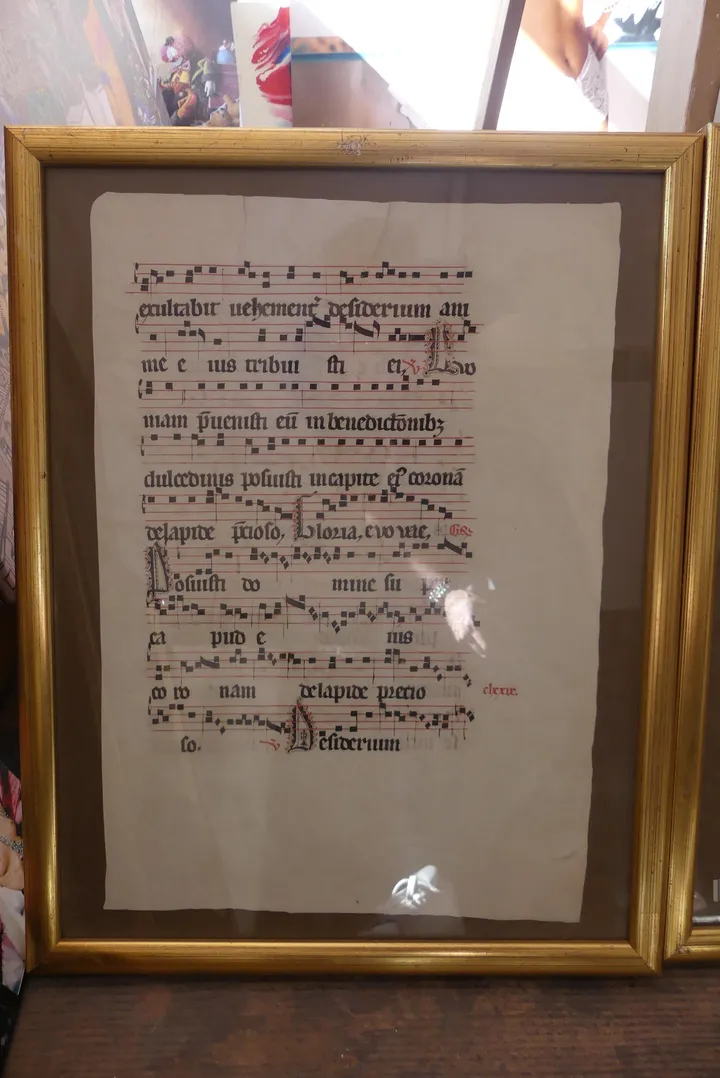 exultabit uehement᷑ desiderium ani
me e ius tribui sti ei, ℣ Qm
niam p̄uenisti eū in benedictōnibꝫ
dulcedinis posuisti in capite eiꝰ coronā
delapide p̄cioso, Gloria, evovae, Gr.
Posuisti do mine su per
ca pud e ius
co ro nam delapide precio clxxix.
so. ℣ Desiderium